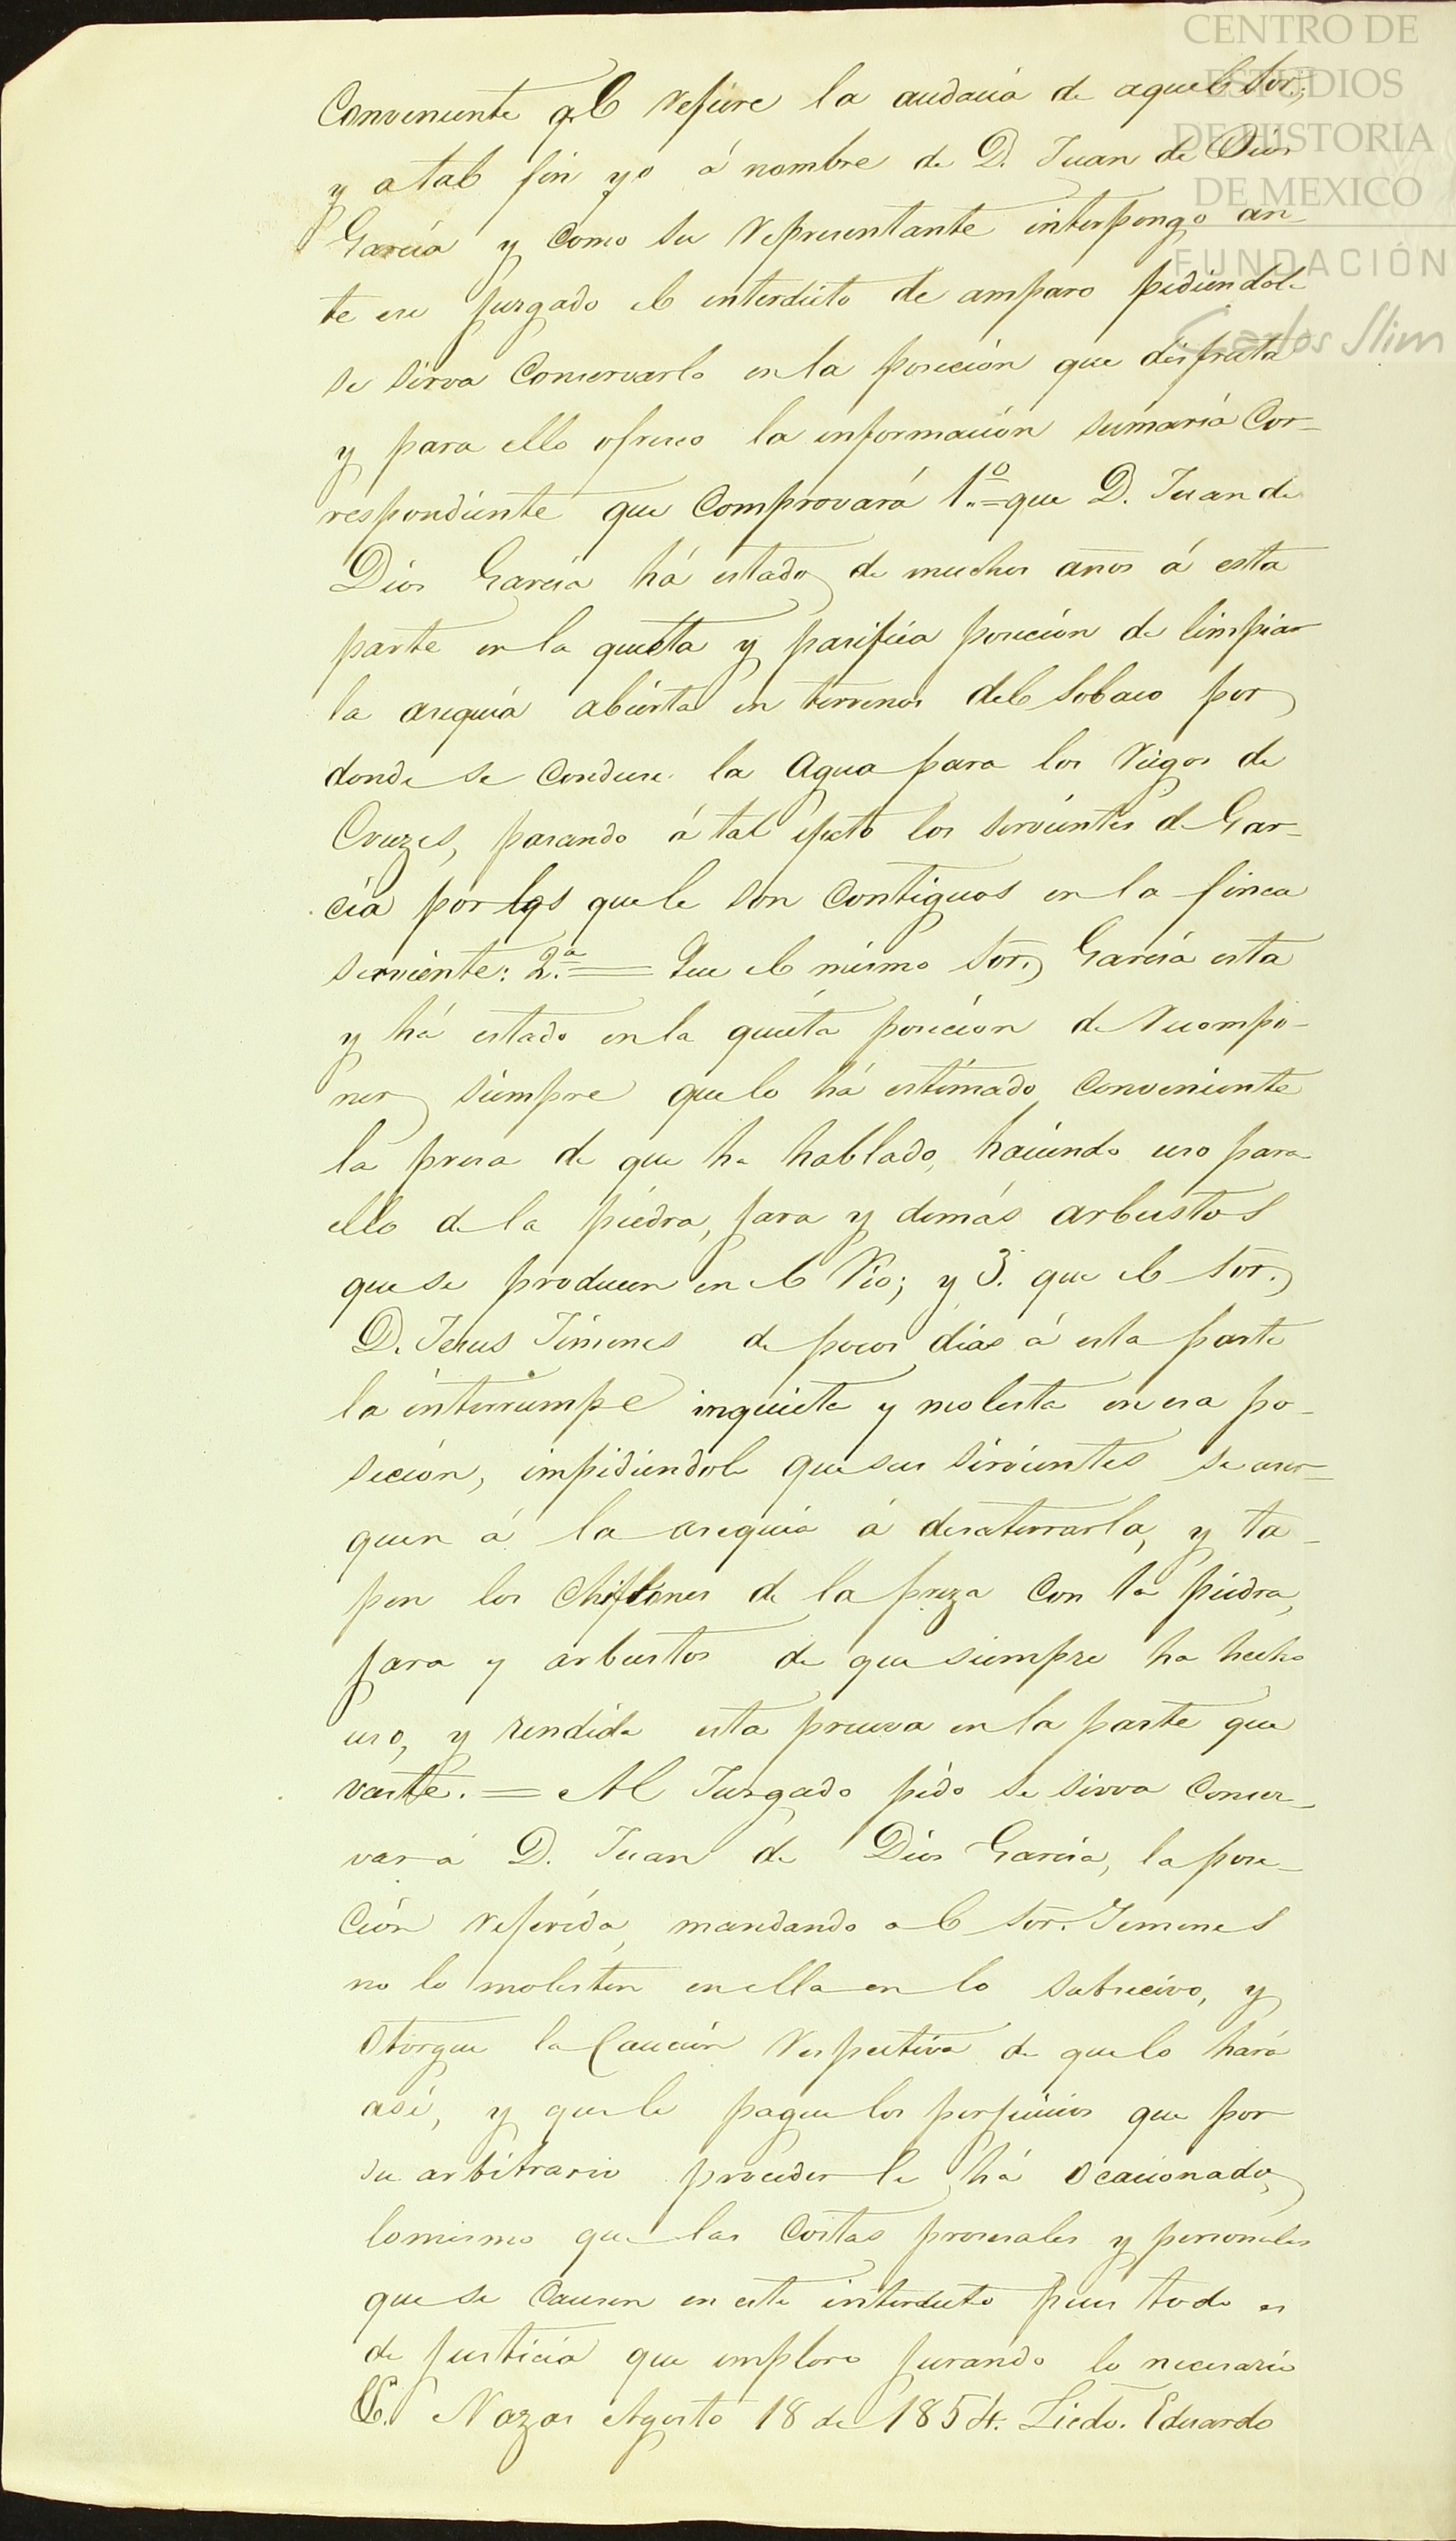 CENTRO DE
ESTUDIOS
DE HISTORIA
DE MEXICO
FUNDACIÓN
Carlos Slim
Conveniente q.e refiere la audacia de aquel Sor.;
y a tal fin yo á nombre de D. Juan de Dios
García y como su representante interpongo an-
te ese jusgado el interdicto de amparo pidiendole
se sirva conservarlo en la poseción que disfruta
y para ello ofresco la información sumaria cor-
respondiente que comprovará 1.º = que D. Juan de
Dios García há estado de muchos años á esta
parte en la quieta y pasifica poseción de limpiar
la asequia abierta en terrenos del Sobaco por
donde se conduse la agua para los riegos de
Cruzes, pasando á tal efecto los servientes de Gar-
cia por los que le son contiguos en la finca
serviente: 2.ª = Que el mismo Sor. García esta
y há estado en la quieta poseción de recompo-
ner siempre que lo há estimado conveniente
la presa de que ha hablado, haciendo uso para
ello de la piedra, jara y demás arbustos
que se producen en el Rio; y 3. que el Sor.
D. Jesus Jimenes de pocos dias á esta parte
la interrumpe inquieta y molesta en esa po-
seción, impidiendole que sus sirvientes se acer-
quen á la asequia á desaterrarla, y ta-
pen los chiflones de la preza con la piedra,
jara y arbustos de que siempre ha hecho
uso, y rendida esta prueva en la parte que
vaste. = Al Jusgado pido se sirva conser-
var á D. Juan de Dios García, la pose-
ción referida, mandando al Sor. Jimenes
no lo molesten en ella en lo subsecivo, y
otorgue la caución respectiva de que lo hará
asi, y que le pague los perjuicios que por
su arbitrario proceder le há ocacionado,
lo mismo que las costas procesales y personales
que se causen en este interdicto pues todo es
de justicia que imploro jurando lo necesario
&. Nazas Agosto 18 de 1854. Licdo. Eduardo